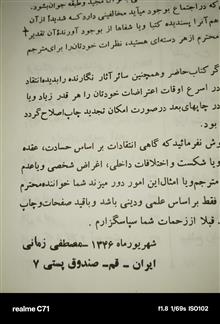 که در اجتماع بوجود میآید مخالفینی داردکه شدیداً ازآن
هم آنرا پسندیده کتباً ویا شفاهاً از بوجود آورندهٔ آن تقدیر
محترم ازهر دسته‌ای هستید، نظرات خودتان را برای مترجم
گر کتاب حاضر وهمچنین سائر آثار نگارنده را بدیده انتقاد
در اسرع اوقات اعتراضات خودتان را هر قدر زیاد ویا
در چاپهای بعد درصورت امکان تجدید چاپ اصلاح گردد
بود.
وش نفرمائید که گاهی انتقادات بر اساس حسادت، عقده
ویا شکست و اختلافات داخلی، اغراض شخصی ویاعدم
مترجم ویا امثال این امور دور میزند شما خواننده محترم
فقط بر اساس علمی ودینی باشد وباقید صفحات وچاپ
قبلا از زحمات شما سپاسگزارم.
شهریورماه ۱۳۴۶ ـ مصطفی زمانی
ایران ـ قم ـ صندوق پستی ۷
realme C71
f1.8 1/69s ISO102